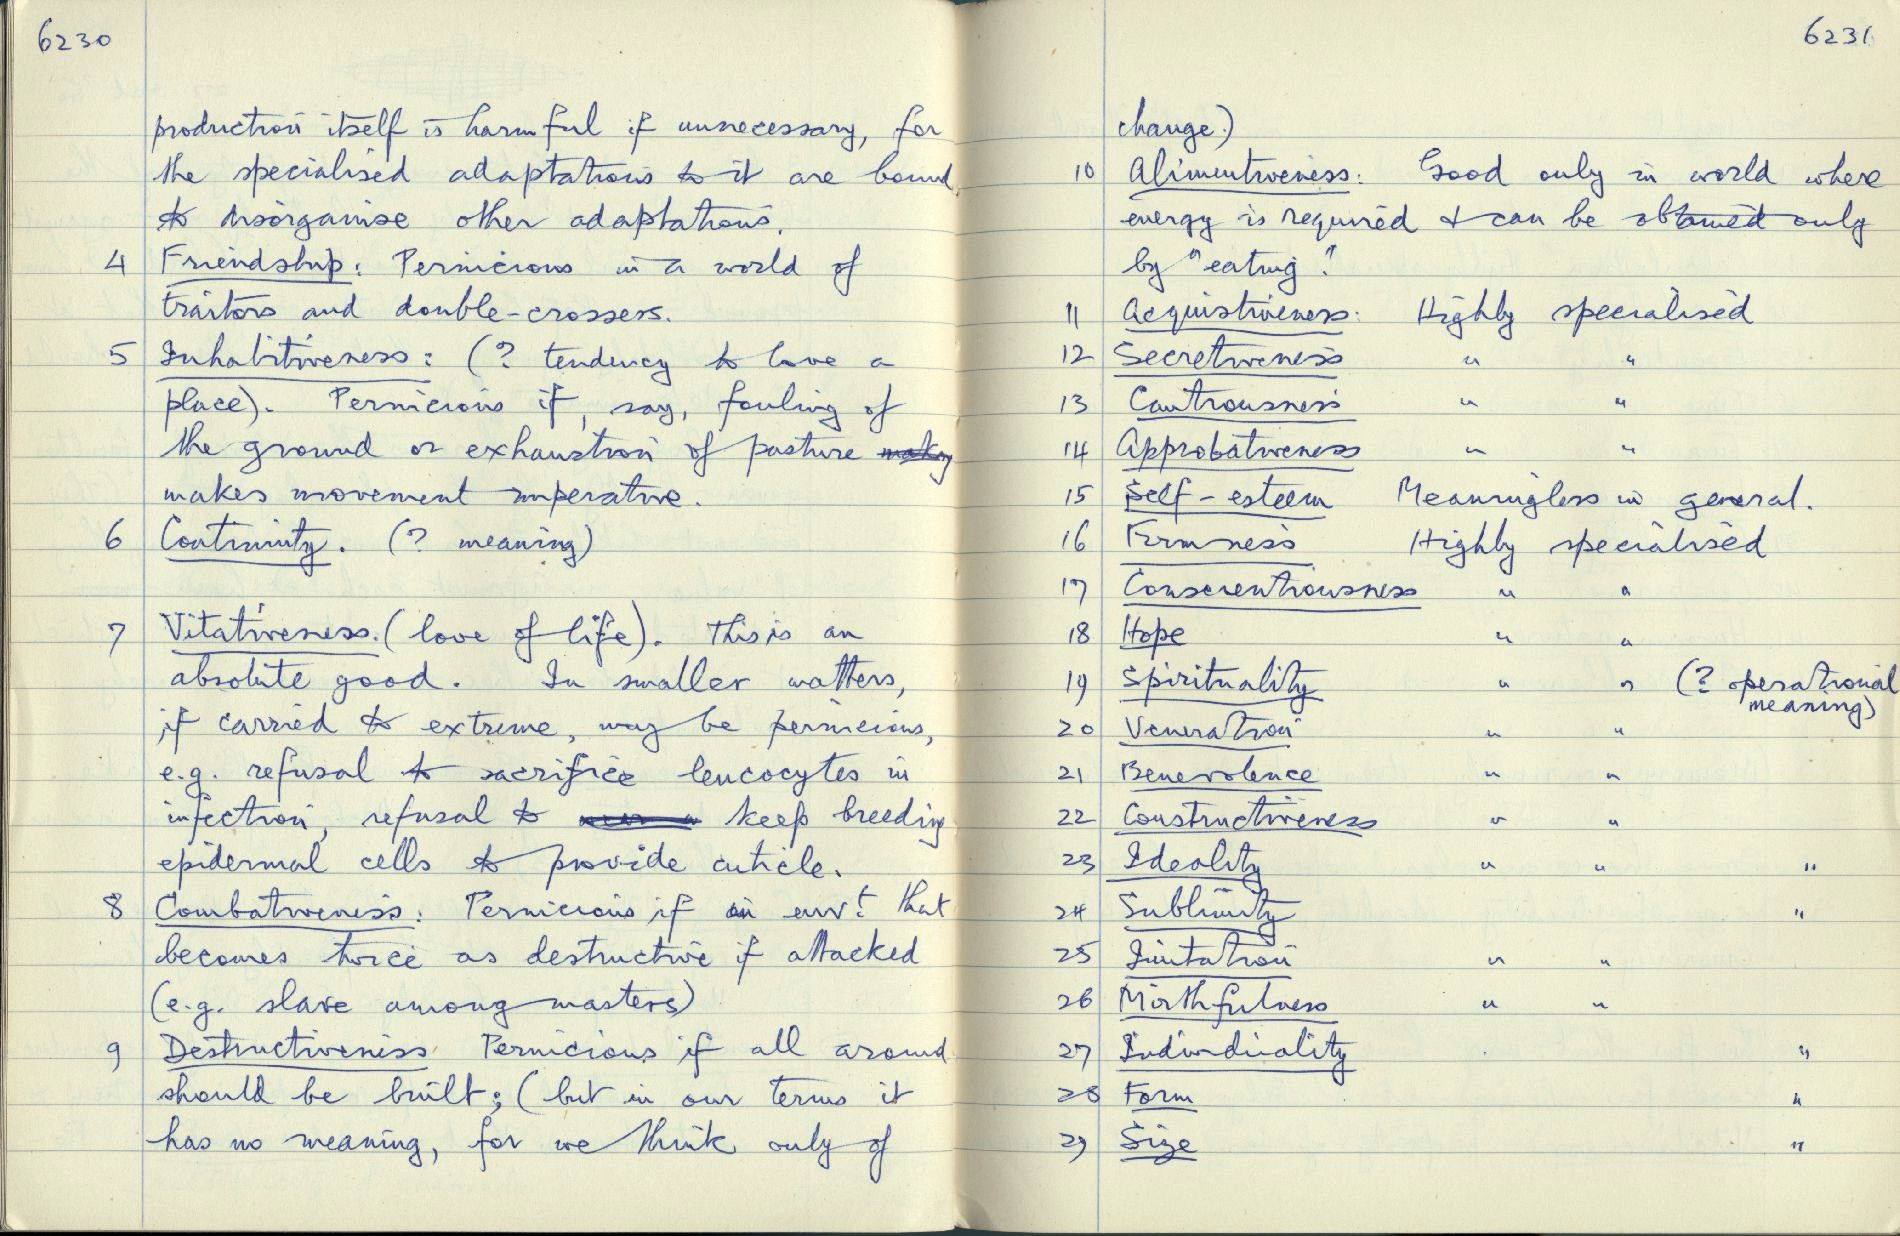 6230
production itself is harmful if unnecessary, for
the specialised adaptations to it are bound
to disorganise other adaptations.
4 Friendship: Pernicious in a world of
traitors and double-crossers.
5 Inhabitiveness: (? tendency to love a
place). Pernicious if, say, fouling of
the ground or exhaustion of pasture
makes movement imperative.
6 Continuity. (? meaning)
7 Vitativeness. (love of life). This is an
absolute good. In smaller matters,
if carried to extreme, may be pernicious,
e.g. refusal to sacrifice leucocytes in
infection, refusal to keep breeding
epidermal cells to provide cuticle.
8 Combativeness: Pernicious if in envt that
becomes twice as destructive if attacked
(e.g. slave among masters)
9 Destructiveness Pernicious if all around
should be built; (but in our terms it
has no meaning, for we think only of
6231
change.)
10 Alimentiveness: Good only in world where
energy is required & can be obtained only
by "eating".
11 Acquisitiveness: Highly specialised
12 Secretiveness " "
13 Cautiousness " "
14 Approbativeness " "
15 Self-esteem Meaningless in general.
16 Firmness Highly specialised
17 Conscientiousness " "
18 Hope " "
19 Spirituality " " (? operational
meaning)
20 Veneration " "
21 Benevolence " "
22 Constructiveness " "
23 Ideality " " "
24 Sublimity "
25 Imitation " "
26 Mirthfulness " "
27 Individuality "
28 Form "
29 Size "